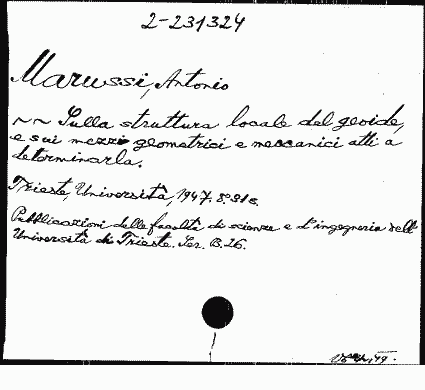 2-231324
Marussi, Antonio
~~ Sulla struttura locale del geoide,
e sui mezzi geometrici e meccanici atti a
determinarla.
Trieste, Università, 1947. 8º.
Pubblicazioni della facoltà di scienze e d'ingegneria dell'
Università di Trieste. Ser. B. 26.